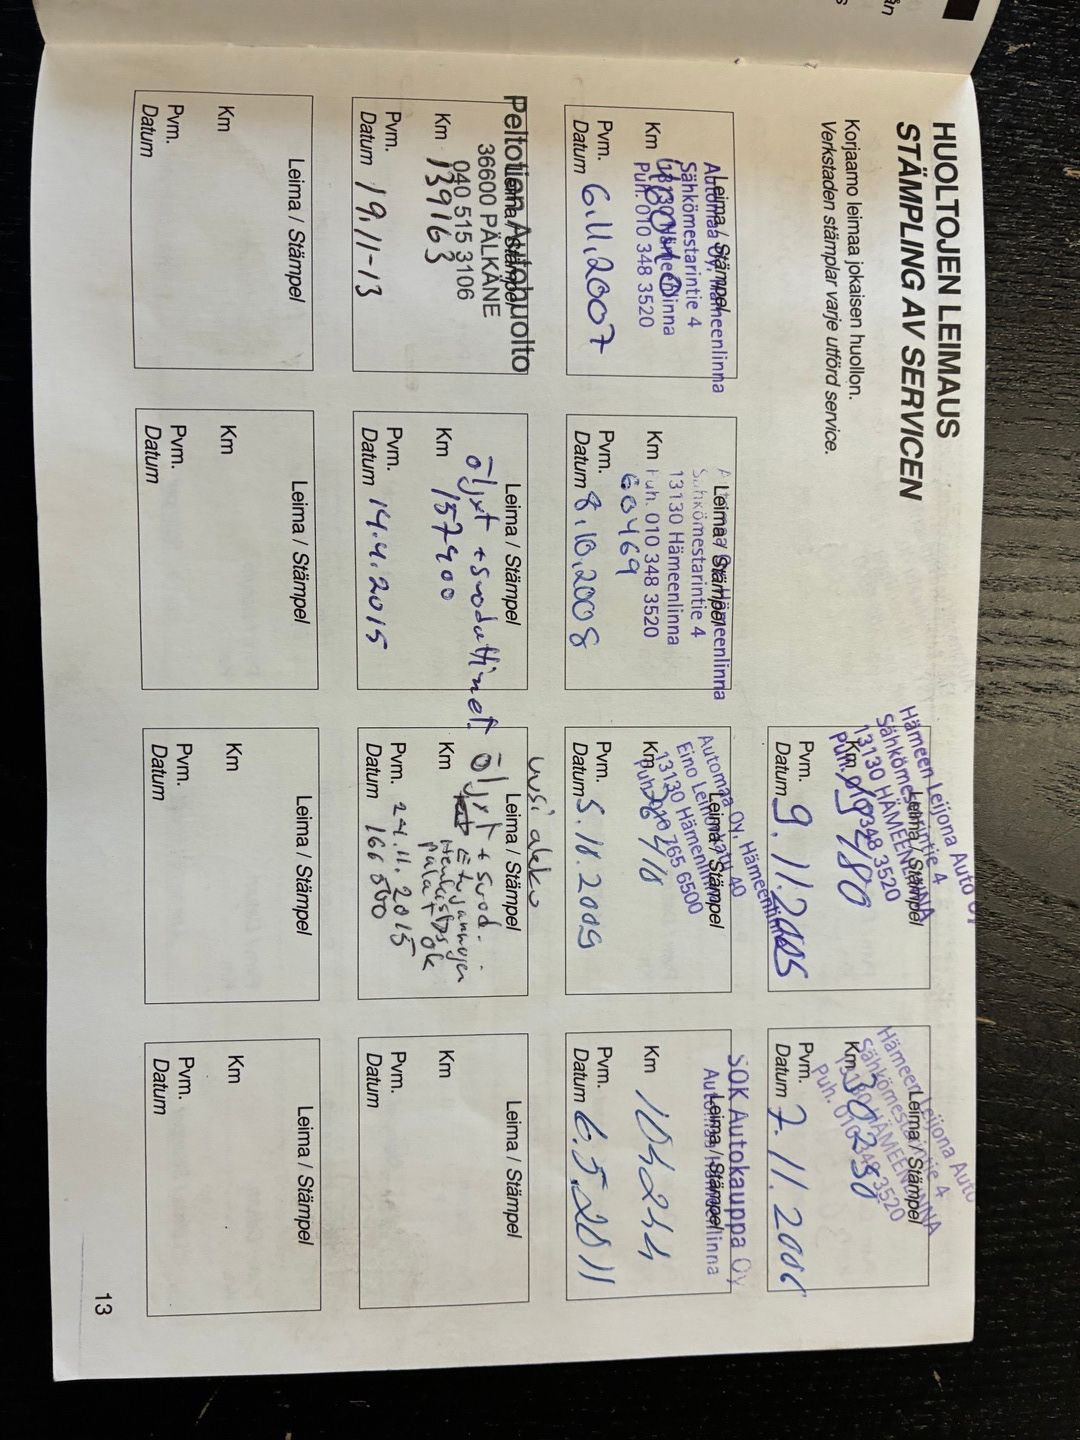 HUOLTOJEN LEIMAUS
STÄMPLING AV SERVICEN
Korjaamo leimaa jokaisen huollon.
Verkstaden stämplar varje utförd service.
Hämeen Leijona Auto
Leima / Stämpel
Sähkömestarintie 4
13130 HÄMEENLINNA
Km
Puh. 010 348 3520
Pvm.
Datum 9.11.2005
Hämeen Leijona Auto
Leima / Stämpel
Sähkömestarintie 4
13130 HÄMEENLINNA
Km 30250
Puh. 010 348 3520
Pvm.
Datum 7.11.2006
Automaa Oy, Hämeenlinna
Leima / Stämpel
Sähkömestarintie 4
13130 Hämeenlinna
Km
Puh. 010 348 3520
Pvm.
Datum 6.11.2007
Hämeenlinna
Leima / Stämpel
Sähkömestarintie 4
13130 Hämeenlinna
Km Puh. 010 348 3520
60469
Pvm.
Datum 8.10.2008
Automaa Oy, Hämeenlinna
Leima / Stämpel
Eino Leinonkatu 40
13130 Hämeenlinna
Km
765 6500
Pvm.
Datum 5.10.2009
SOK Autokauppa Oy
Leima / Stämpel
Automaa Hämeenlinna
Km 104244
Pvm.
Datum 6.5.2011
Peltotien Autohuolto
Leima / Stämpel
36600 PÄLKÄNE
040 515 3106
Km 139163
Pvm.
Datum 19.11-13
Leima / Stämpel
öljyt + suodattimet
Km 157400
Pvm.
Datum 14.4.2015
uusi akku
Leima / Stämpel
öljyt + suod.
palat ok
Km
Pvm. 24.11.2015
Datum 166500
Leima / Stämpel
Km
Pvm.
Datum
Leima / Stämpel
Km
Pvm.
Datum
Leima / Stämpel
Km
Pvm.
Datum
Leima / Stämpel
Km
Pvm.
Datum
Leima / Stämpel
Km
Pvm.
Datum
13